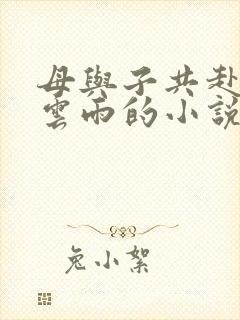 母與子共赴
雲雨的小說
兔小絮